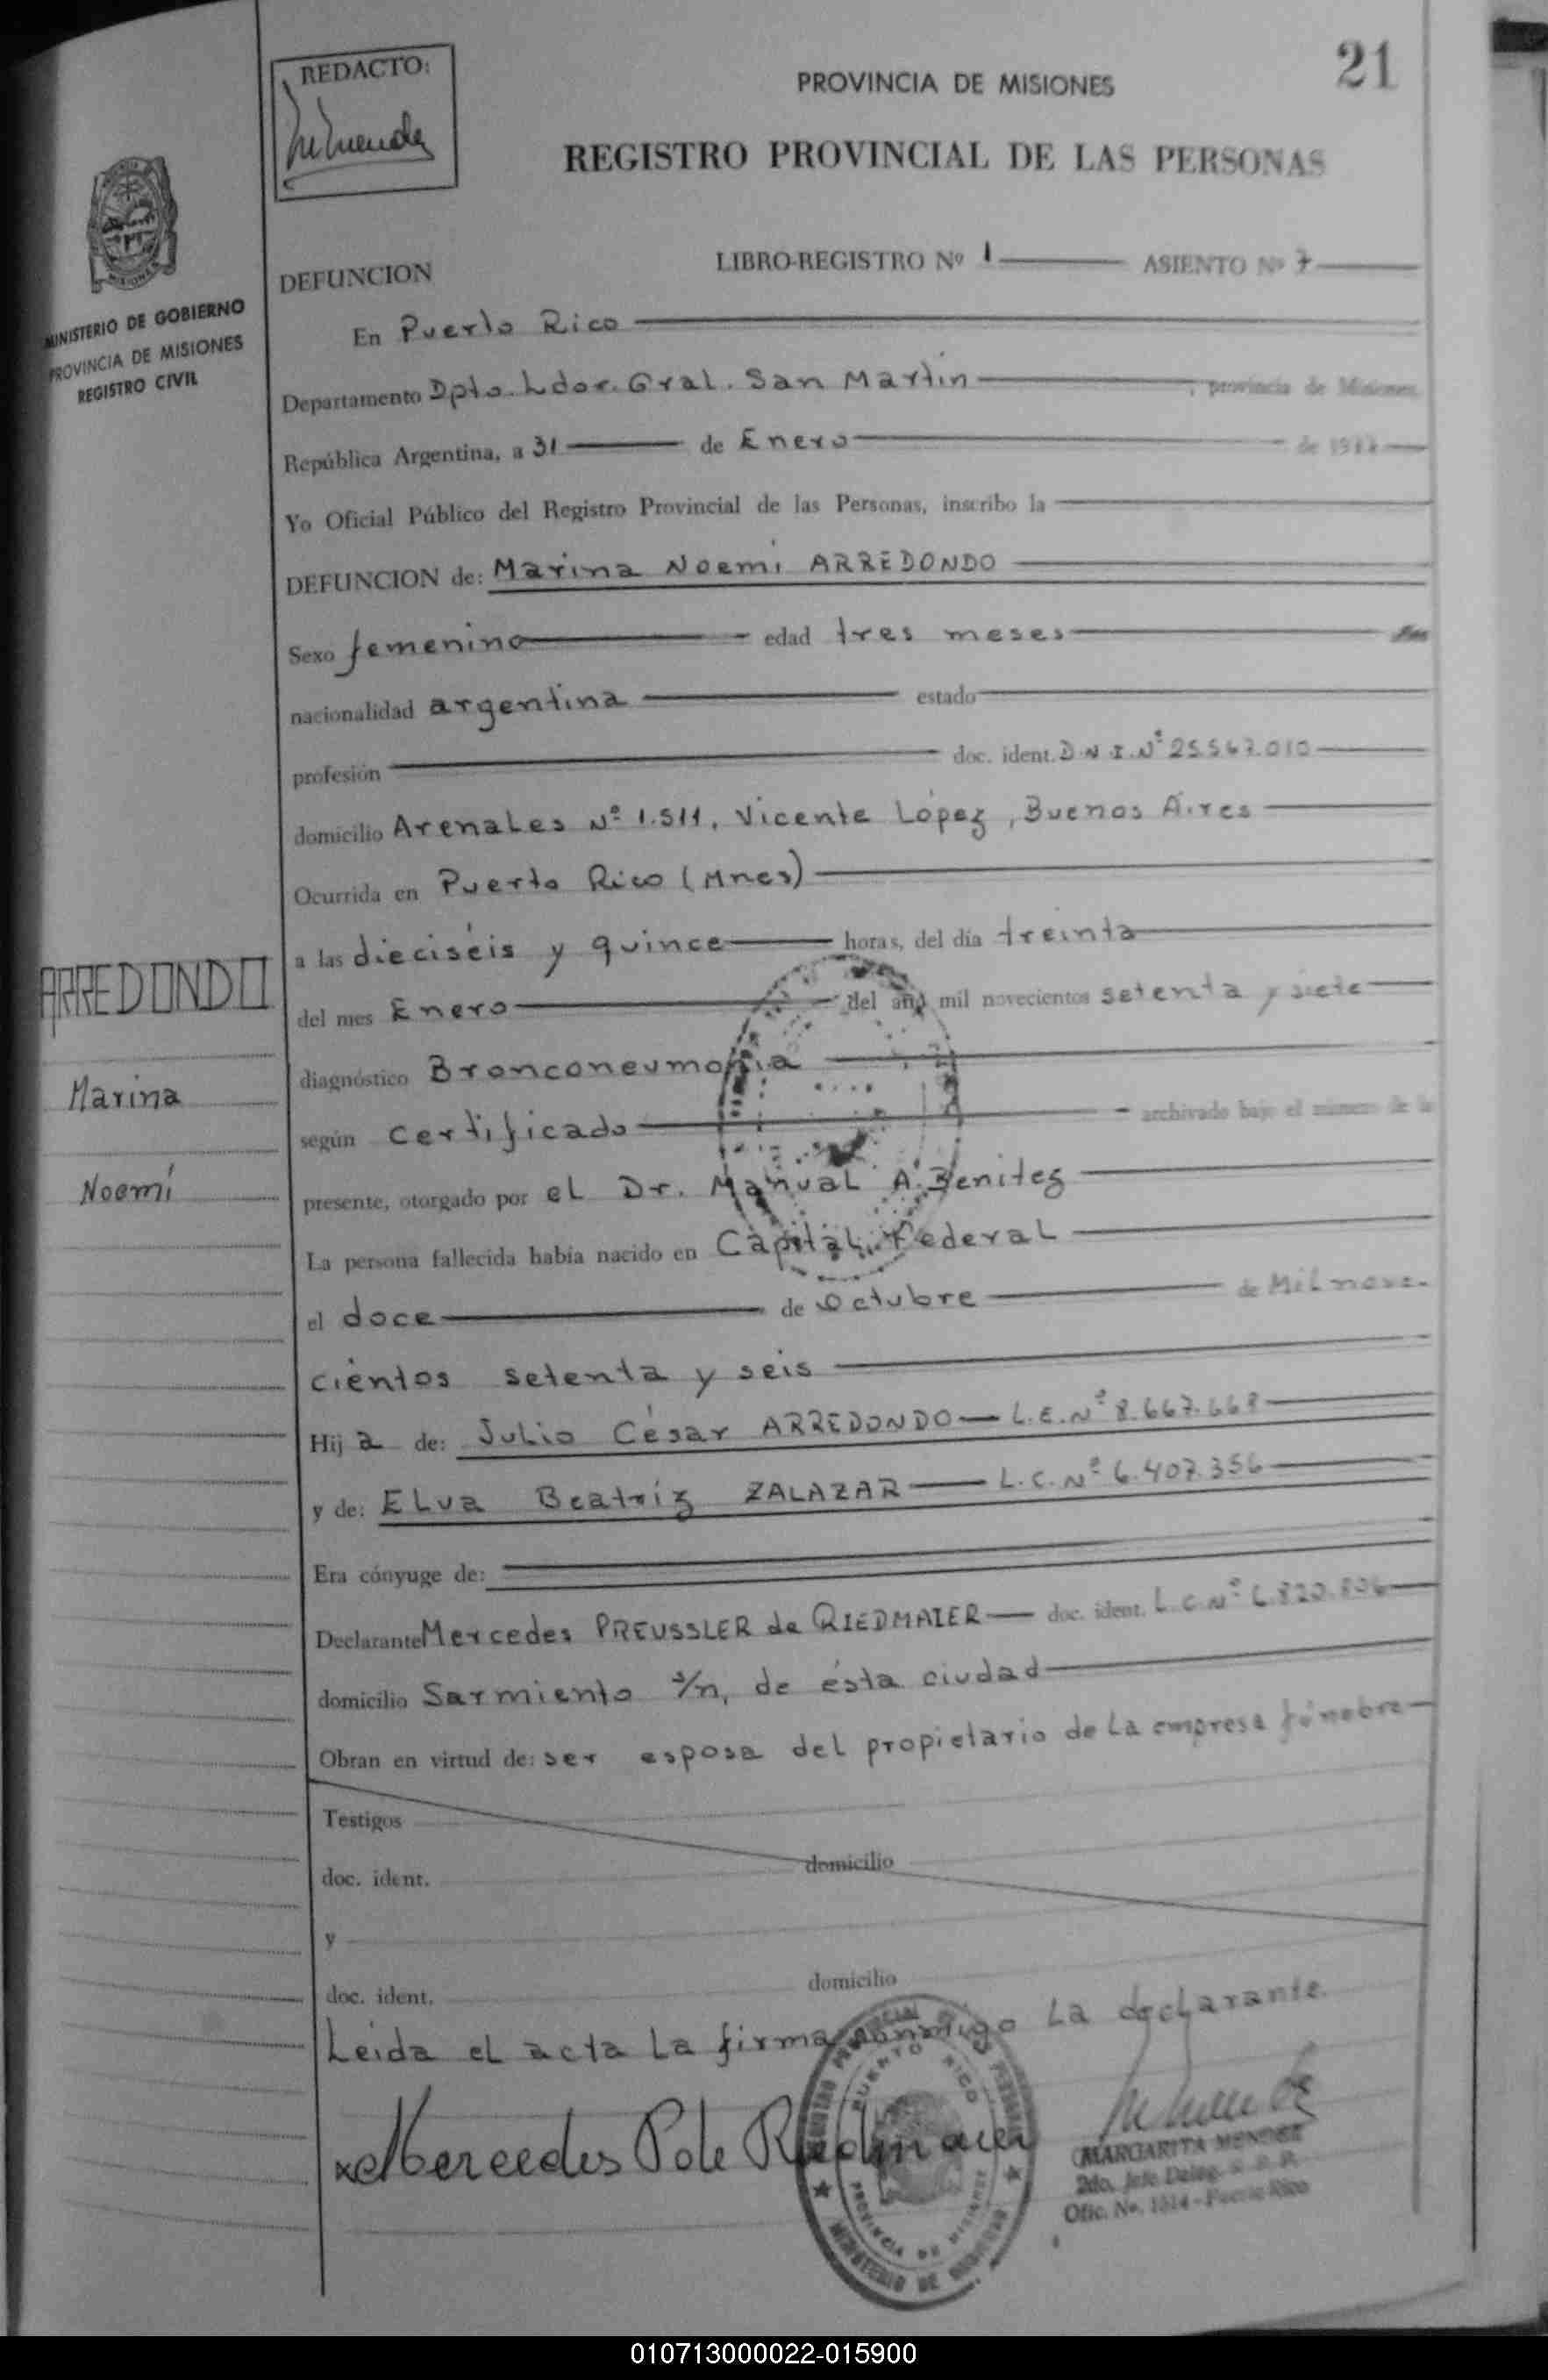 21
REDACTO:
PROVINCIA DE MISIONES
REGISTRO PROVINCIAL DE LAS PERSONAS
MISIONES
MINISTERIO DE GOBIERNO
PROVINCIA DE MISIONES
REGISTRO CIVIL
DEFUNCION LIBRO-REGISTRO Nº 1 ASIENTO Nº 7
En Puerto Rico
Departamento Dpto. Ldor. Gral. San Martín, provincia de Misiones,
República Argentina, a 31 de Enero de
Yo Oficial Público del Registro Provincial de las Personas, inscribo la
DEFUNCION de: Marina Noemí ARREDONDO
Sexo femenino edad tres meses
nacionalidad argentina estado
profesión doc. ident. D.N.I. Nº 25.567.010
domicilio Arenales Nº 1.511, Vicente López, Buenos Aires
Ocurrida en Puerto Rico (Mnes)
a las dieciséis y quince horas, del día treinta
del mes Enero del año mil novecientos setenta y siete
diagnóstico Bronconeumonia
según certificado archivado bajo el número de la
presente, otorgado por el Dr. Manual A. Benitez
La persona fallecida había nacido en Capital Federal
el doce de Octubre de Mil nove-
cientos setenta y seis
Hija de: Julio César ARREDONDO L.E.Nº 8.667.668
y de: Elva Beatríz ZALAZAR L.C.Nº 6.407.356
Era cónyuge de:
Declarante Mercedes PREUSSLER de RIEDMAIER doc. ident. L.C.Nº 6.820.806
domicilio Sarmiento s/n, de ésta ciudad
Obran en virtud de: ser esposa del propietario de la empresa fúnebre
Testigos
doc. ident. domicilio
y
doc. ident. domicilio
Leída el acta la firma conmigo la declarante
Mercedes P de Riedmaier
MARGARITA MENDEZ
2do. Jefe Deleg. R. P. P.
Ofic. No. 1614 - Puerto Rico
REGISTRO PROVINCIAL DE LAS PERSONAS
PUERTO RICO
PROVINCIA DE MISIONES
MINISTERIO DE GOBIERNO
ARREDONDO
Marina
Noemí
010713000022-015900